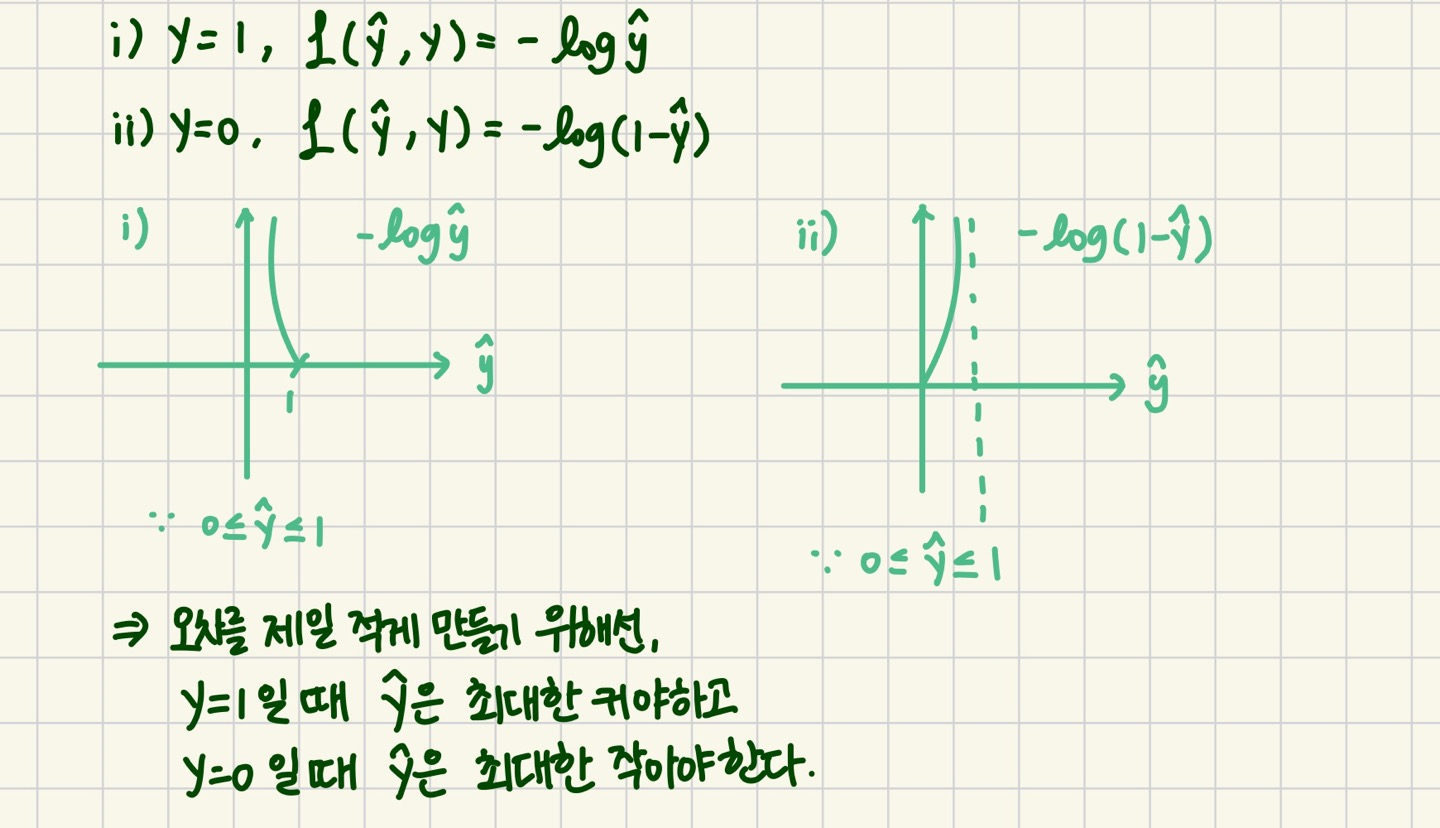 i) y=1, L(ŷ,y)= -log ŷ
ii) y=0. L(ŷ,y)= -log(1-ŷ)
i) -log ŷ
ŷ
1
∵ 0≤ŷ≤1
ii) -log(1-ŷ)
ŷ
∵ 0≤ŷ≤1
⇒ 오차를 제일 작게 만들기 위해선,
y=1일 때 ŷ은 최대한 커야하고
y=0일때 ŷ은 최대한 작아야한다.